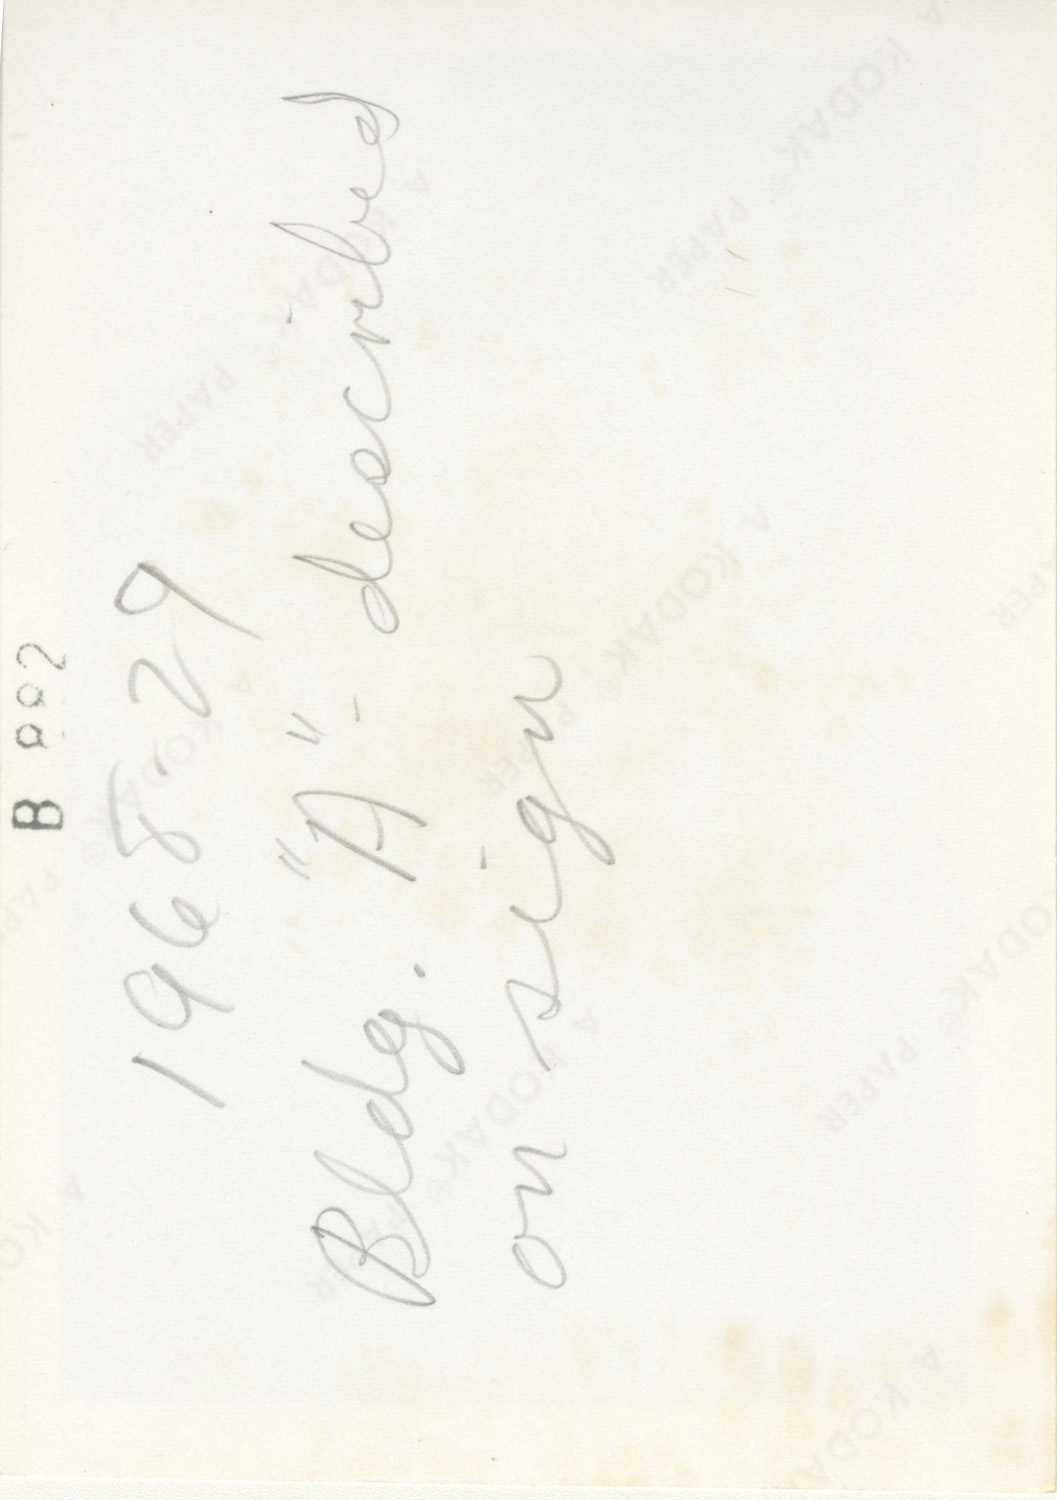 B 992
1968-29
Bldg. "A" - described
on sign
A KODAK® PAPER
A KODAK® PAPER
A KODAK® PAPER
A KODAK® PAPER
A KODAK® PAPER